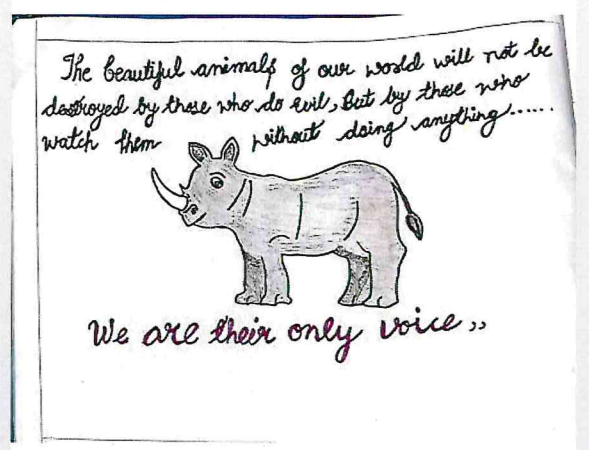 The beautiful animals of our world will not be
destroyed by those who do evil, But by those who
watch them without doing anything......
We are their only voice ,,